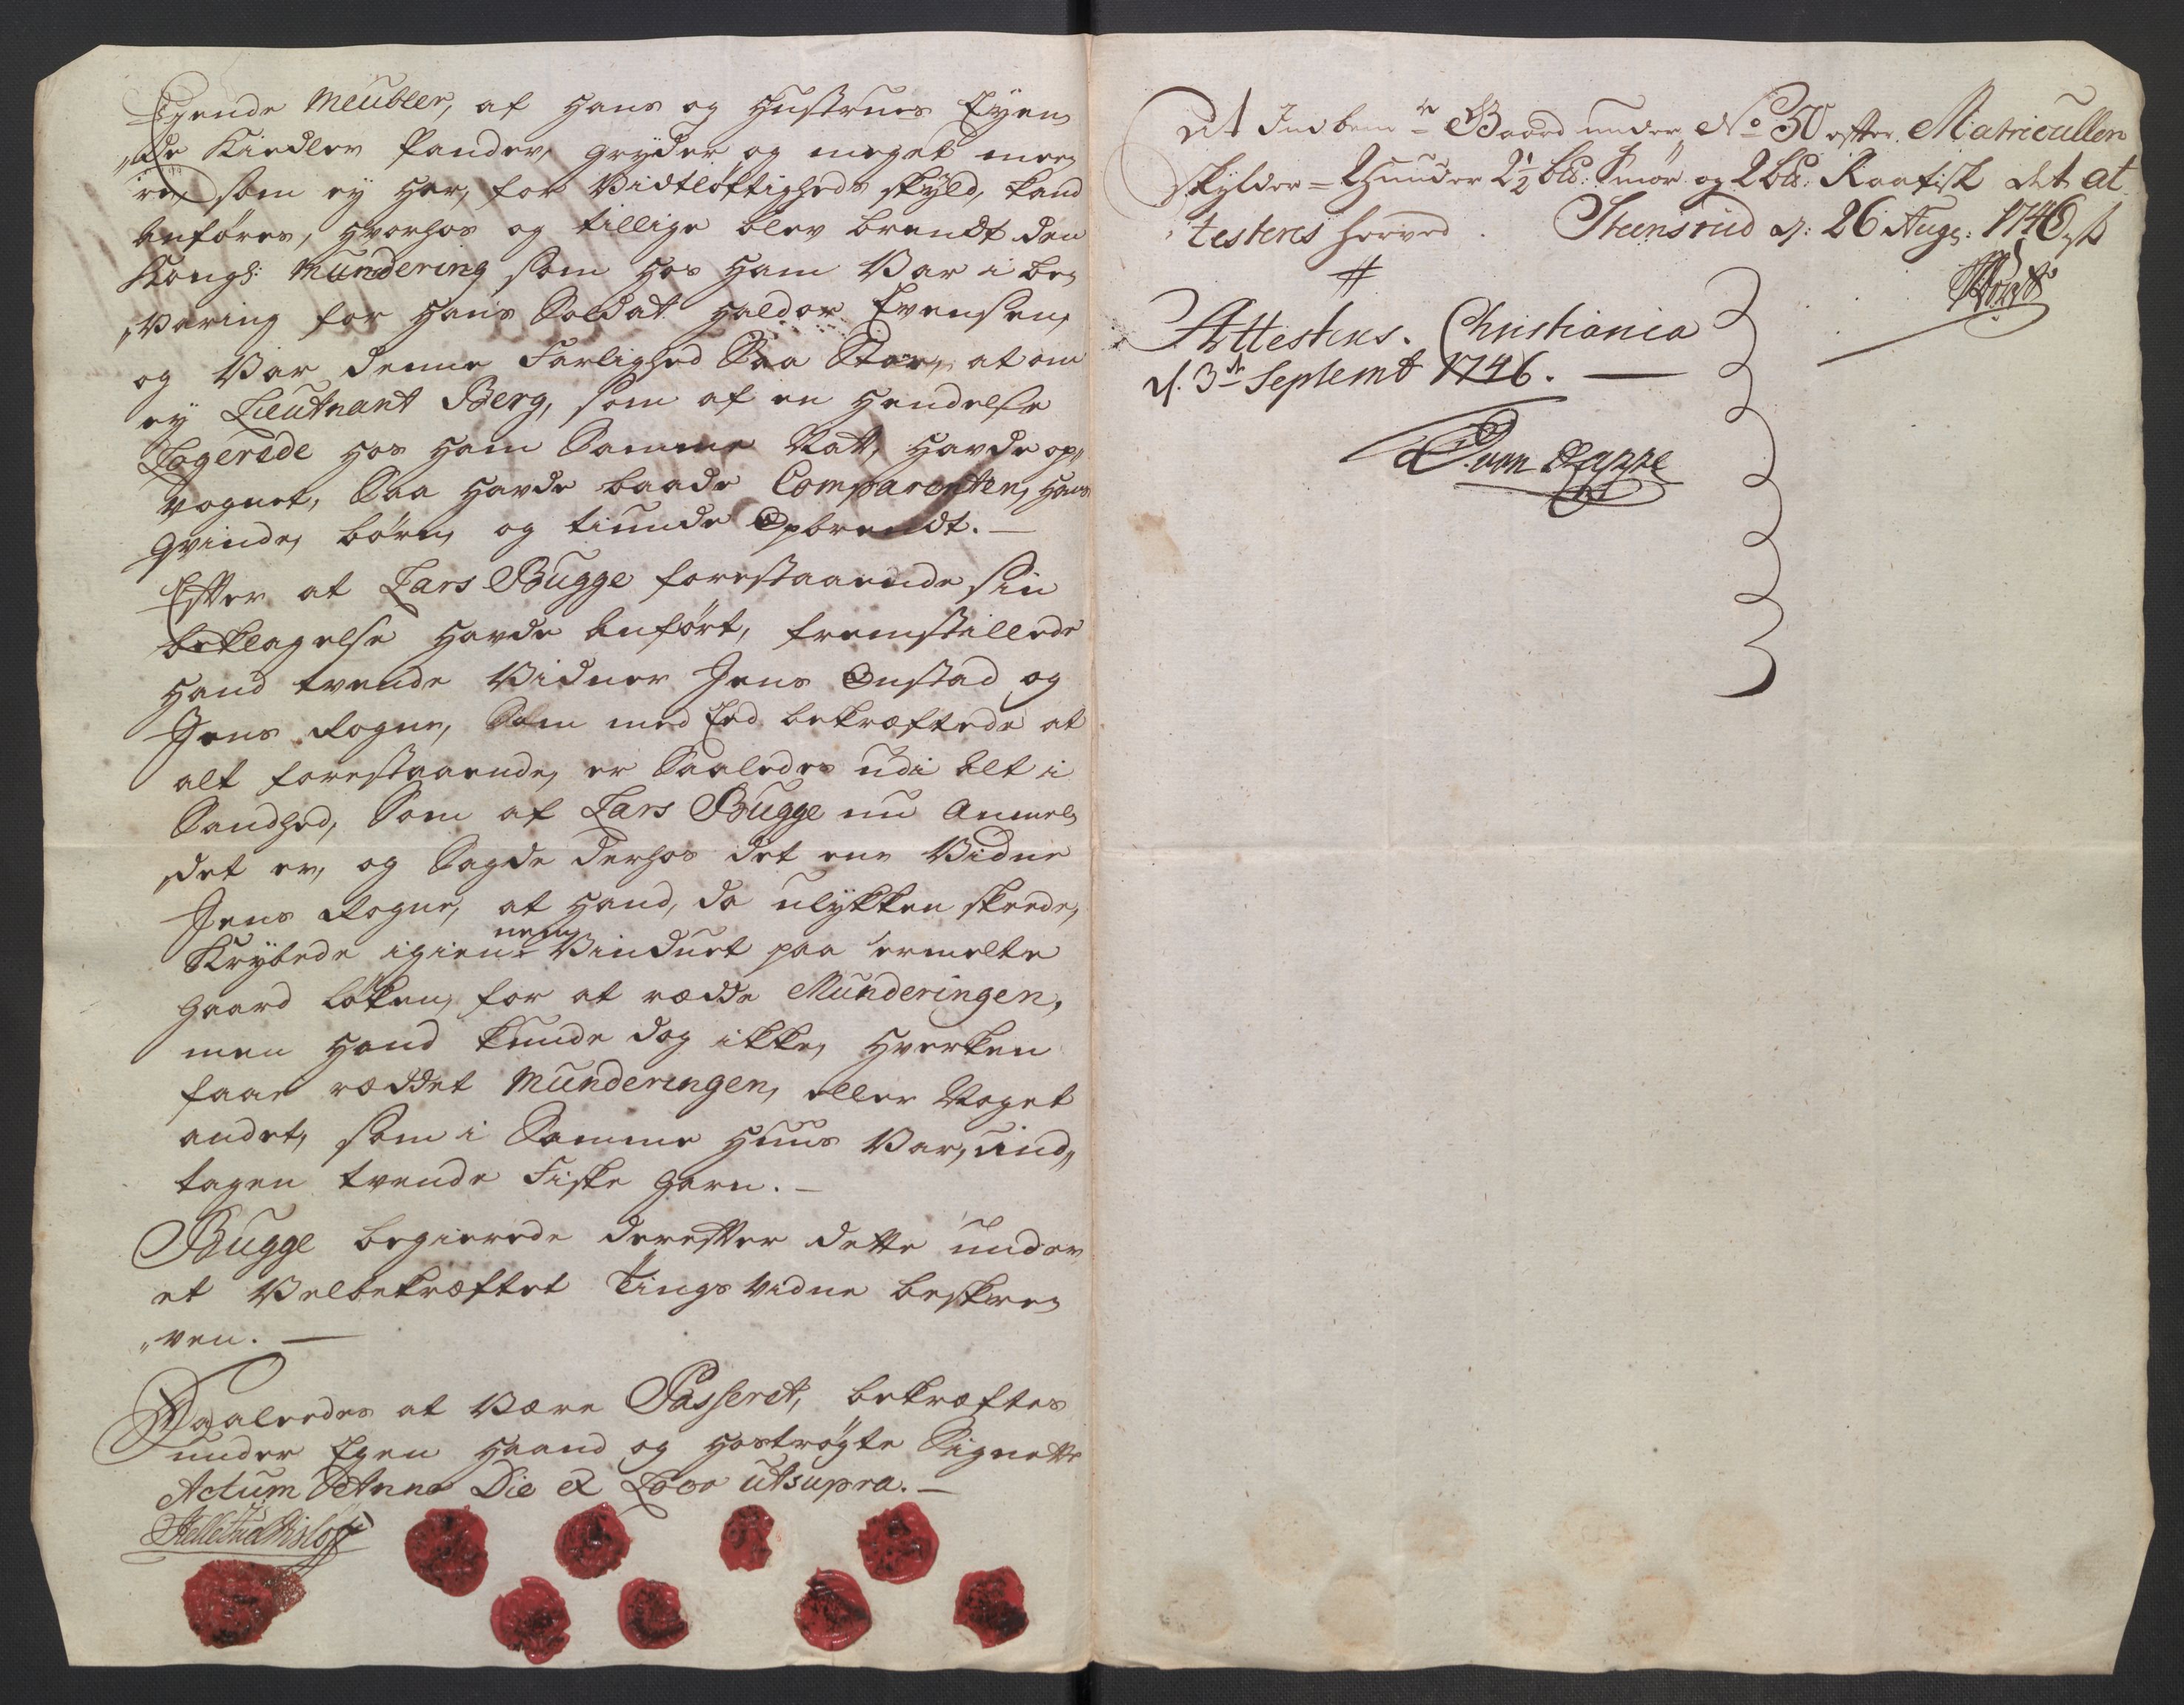 Egende Meubler, af Hans og Hustrues Eyen
„de Kiedler Pander, gryder og meget mee,
re, som ey her, for Vidtløftigheds skyld, kand
anføres, hvorhos og tillige blev brendt den
Kongl: Mundering som hos ham Var i be,
„varing for hans Soldat Haldor Evensen,
og Var denne Farlighed Saa Stor, at om
ey Lieutnant Berg, som af en hendelse
Logerede hos ham Samme Natt, havde op„
vognet, Saa havde baade Comparenten, hans
qvinde, børn, og tiunde Opbrendt. —
Efter at Lars Bugge forestaaende sin
beklagelse havde anført, fremstillede
hand tvende Vidner Jens Onstad og
Jens Rogne, Som med Eed bekræftede at
alt forestaaende, er Saaledes udi alt i
Sandhed, Som af Lars Bugge nu Anmel,
„det er, og Sagde derhos det ene Vidne
Jens Rogne, at hand, da ulykken skeede,
Krybede igiennem Vinduet paa ermelte
gaard Løken, for at rædde Munderingen,
men hand kunde dog ikke, hverken
faae ræddet Munderingen, eller Noget
andet, som i Samme Huus Var, und„
tagen tvende Fiske garn. —
Bugge begierede derefter dette under
et Velbekræftet Tings Vidne beskre,
„ven. —
Saaledes at Være Passeret, bekræftes
under Egen Haand og hostrøgte Signetter
Actum Anno Die et Loco utsupra. —
Det Indbem:te Gaard under No 30 efter Matricullen
skylder = 2 Hunder 2 1/2 bd: Smør og 2 bd: Raafisk det at
„testeres herved. Steensrud d: 26 Aug: 1746
Attesteres. Christiania
d. 3de Septemb 1746. —